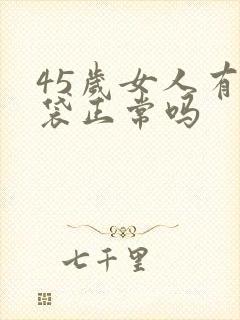 45歲女人有
袋正常吗
七千里